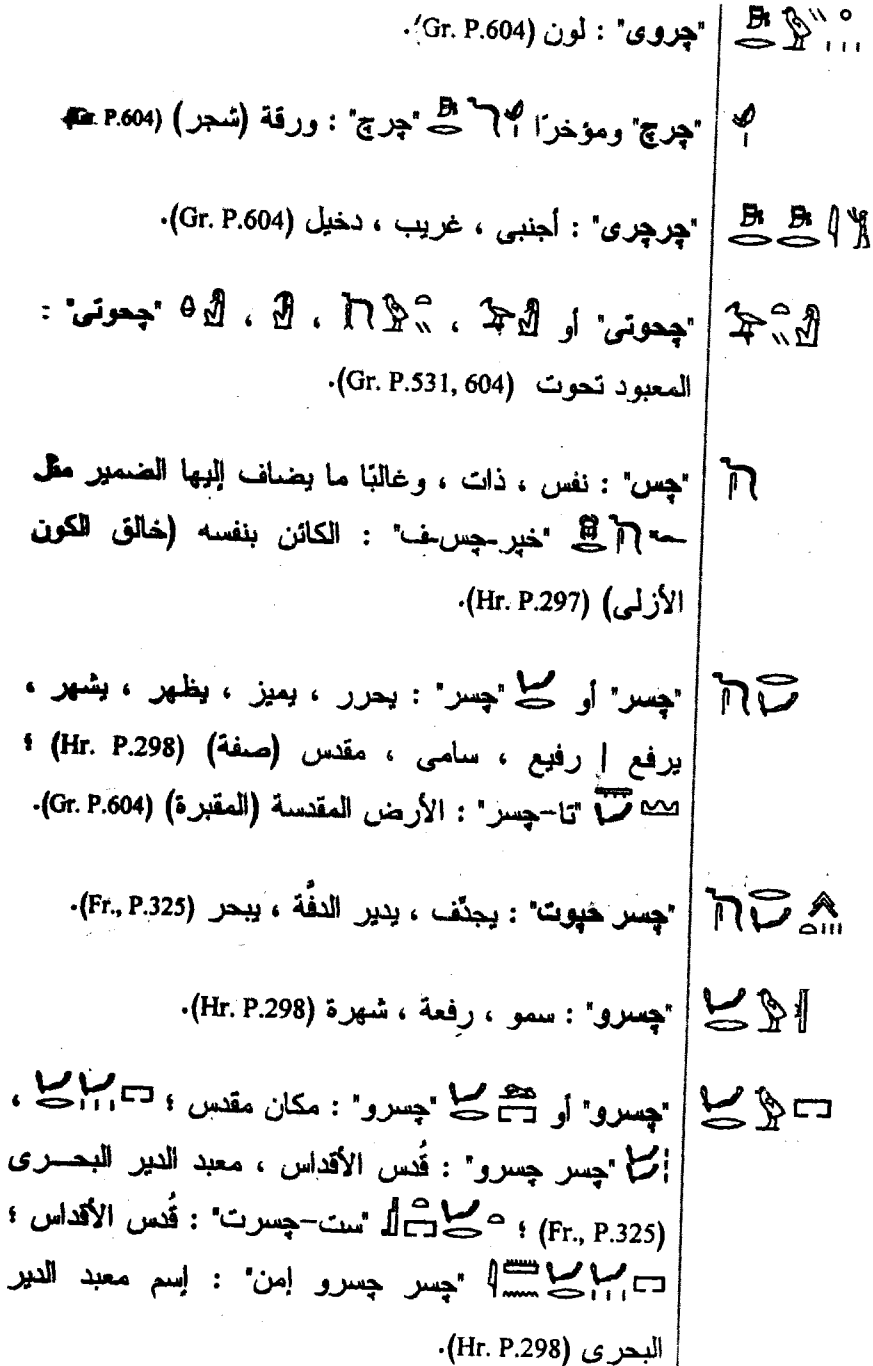 "چروى" : لون (Gr. P.604).
"چرچ" ومؤخرًا "چرچ" : ورقة (شجر) (Gr. P.604)
"چرچرى" : أجنبى ، غريب ، دخيل (Gr. P.604).
"چحوتى" أو ، ، ، "چحوتى" :
المعبود تحوت (Gr. P.531, 604).
"چس" : نفس ، ذات ، وغالبًا ما يضاف إليها الضمير مثل
"خپر-چس-ف" : الكائن بنفسه (خالق الكون
الأزلى) (Hr. P.297).
"چسر" أو "چسر" : يحرر ، يميز ، يظهر ، يشهر ،
يرفع | رفيع ، سامى ، مقدس (صفة) (Hr. P.298) ؛
"تا-چسر" : الأرض المقدسة (المقبرة) (Gr. P.604).
"چسر حپوت" : يجدّف ، يدير الدفَّة ، يبحر (Fr., P.325).
"چسرو" : سمو ، رفعة ، شهرة (Hr. P.298).
"چسرو" أو "چسرو" : مكان مقدس ؛ ،
"چسر چسرو" : قُدس الأقداس ، معبد الدير البحـــرى
(Fr., P.325) ؛ "ست-چسرت" : قُدس الأقداس ؛
"چسر چسرو إمن" : إسم معبد الدير
البحرى (Hr. P.298).